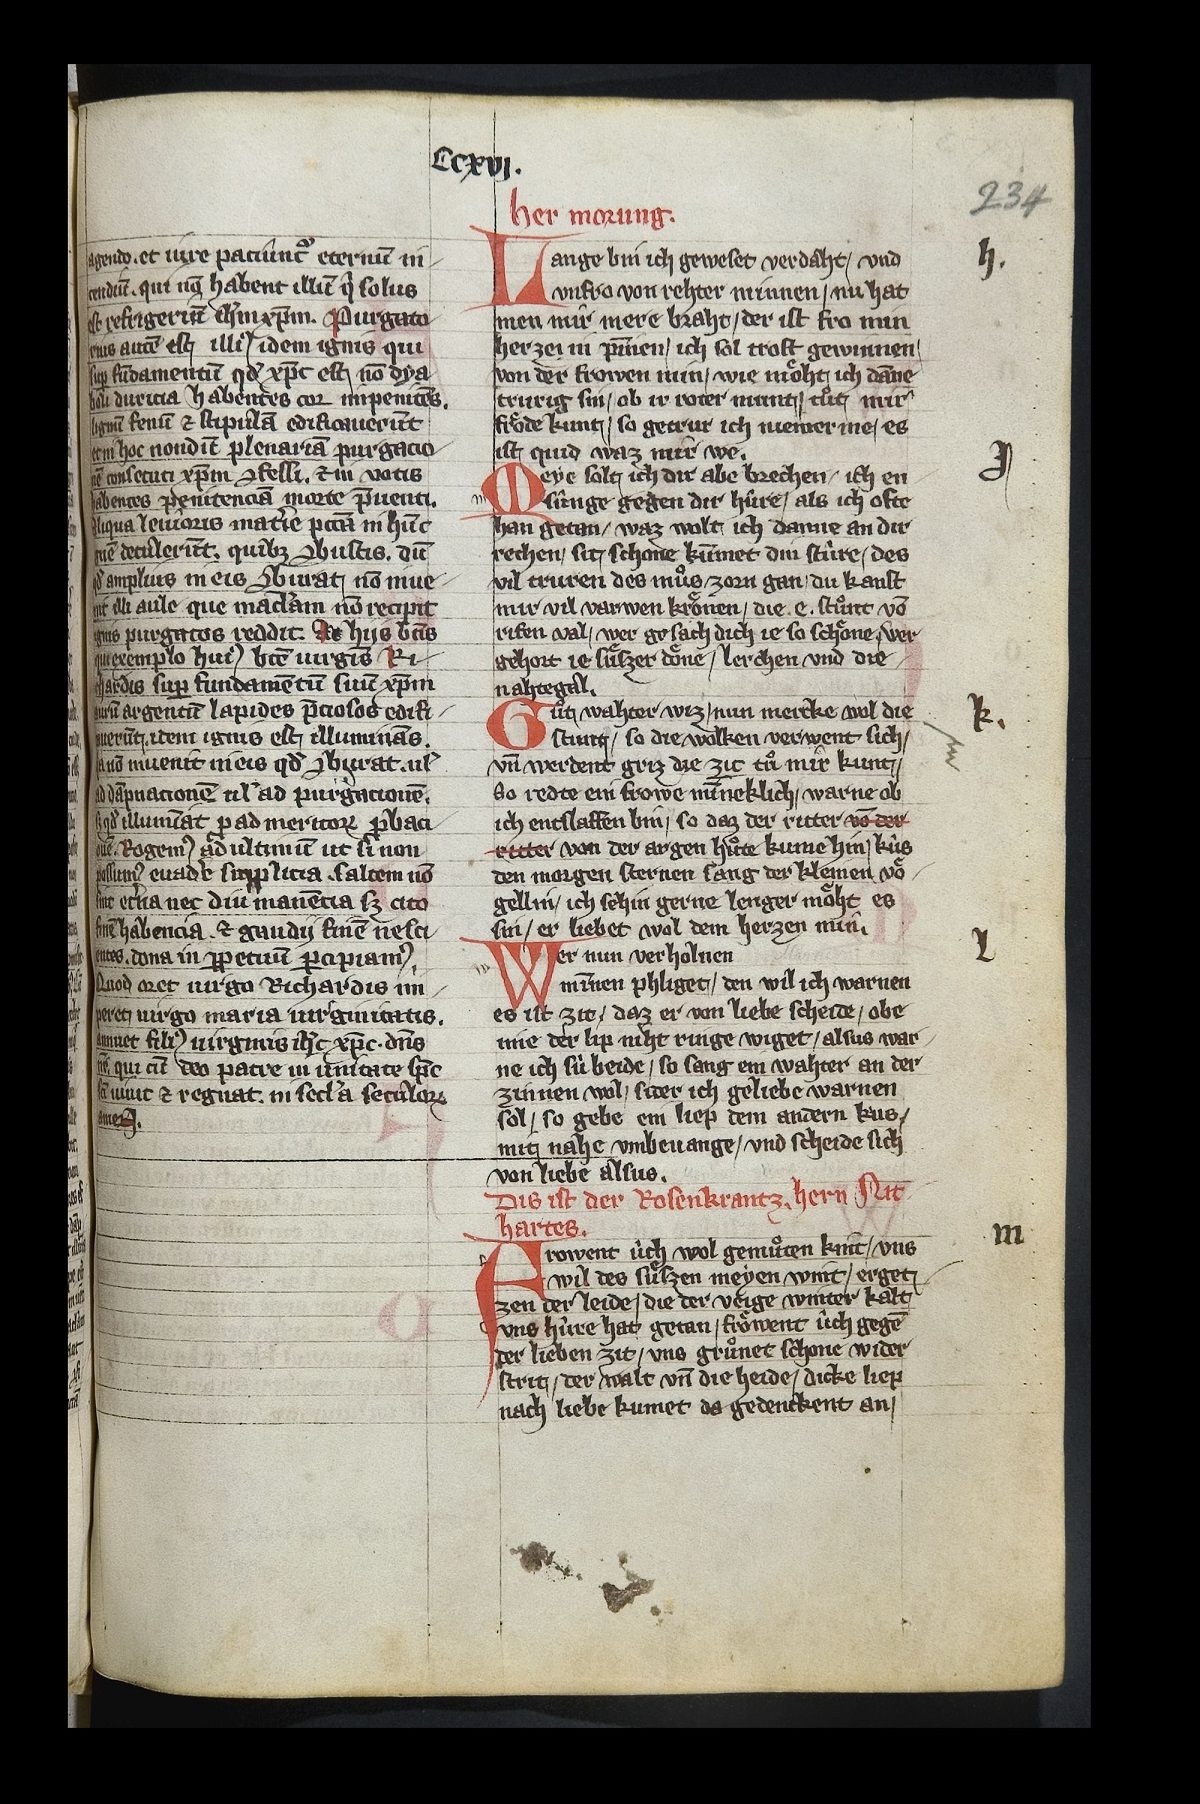 CCXVI.
234
agendo. et iure paciūnt᷑ eternū in
cendiū. qui nō habent illū q̇ solus
est refrigeriū ih̄m xp̄m. Purgato
rius autē est illi⁊ idem ignis qui
sup fūdamentū qd̄ xp̄c est nō dya
boli duricia habentes cor inpenitēs.
lignū fenū ⁊ stipulā edificauerūt
etin hoc nondū plenariā purgacio
nē consecuti xp̄m ꝯfessi. ⁊ in votis
habentes penitenciā morte p̄uenti.
aliqua leuioris mat̄ie pccā in hūc
ignē detulerūt. quibꝫ ꝯbustis. dū
qd̄ amplius in eis ꝯburat nō inue
nit illi aule que maclām nō recipit
ignis purgatos reddit. Ab hijs btīs
qui exemplo hui⁹ btē uirgīs Ri
chardis sup fundamētū suū xp̄m
aurū argentū lapides p̄ciosos edifi
cauerūt. idem ignis est illuminās.
Quia nō inuenit in eis qd̄ ꝯburat. ul̕
ad dāpnacionē ul̕ ad purgacionē.
sꝫ qd̄ illumīat p ad meritoꝝ ꝓbaci
onē. Rogem⁹ ad ultimū ut si non
possum⁹ euad̕e supplicia. saltem nō
sint et̕na nec diu manētia sꝫ cito
finē habencia. ⁊ gaudij finē nesci
entes. dona in ꝑpetuū ꝑcipiam⁹.
Quod oret uirgo Richardis im
peret uirgo maria uirginitatis.
annuet fili⁹ uirginis ih̄c xp̄c. dn̄s
nr̄. qui cū deo patre in ūnitate sp̄c
sc̄i uiuit ⁊ regnat. in secl̕a seculoꝝ
amen.
her morung.
Lange bin ich geweset verdaht/ vnd
vnfro von rehter minnen/ nu hat
men mir mere braht/ der ist fro min
herze in p̄nnen/ ich sol trost gewinnen/
von der frowen min/ wie möht ich dāne
trurig sin/ ob ir roter munt/ tůt mir
fröde kunt/ so getrur ich niemer me/ es
ist quid waz mir we.
h.
Meye solt ich dir abe brechen/ ich en
sûnge gegen dir hûre/ als ich ofte
han getan/ waz wolt ich danne an dir
rechen/ sit schone kūmet din stûre/ des
vil truren des můs zorn gan/ du kanst
mir vil varwen krönen/ die. e. stůnt vō
rifen val/ wer gesach dich ie so schöne/ wer
gehort ie sůszer döne/ lerchen vnd die
nahtegal.
J
Gůt wahter wiz/ nun mercke wol die
stunt/ so die wolken verwent sich/
vn̄ werdent griz die zit tů mir kunt/
So redte ein frowe mīneklich/ warne ob
ich entslaffen bin/ so daz der ritter vō der
ritter von der argen hůte kume hin/ kûs
den morgen sternen sang der kleinen vö
gellin/ ich schin gerne lenger möht es
sin/ er liebet wol dem herzen min.
k.
Wer nun verholnen
minnen phliget/ den wil ich warnen
es ist zit/ daz er von liebe scheide/ obe
mie der lip niht ringe wiget/ alsus war
ne ich sû beide/ so sang ein wahter an der
zinnen wol/ sider ich geliebe warnen
sol/ so gebe ein liep dem andern kus/
mit nahe vmbeuange/ vnd scheide sich
von liebe alsus.
l
Dis ist der Rosenkrantz. hern Nit
hartes.
Frowent ûch wol gemůten kint/ vns
wil des sůszen meyen wint/ erget
zen der leide/ die der veige winter kalt
vns hûre hat getan/ fröwent ûch gegē
der lieben zit/ vns grůnet schone wider
strit/ der walt vn̄ die heide/ dicke liep
nach liebe kumet da gedenckent an/
m